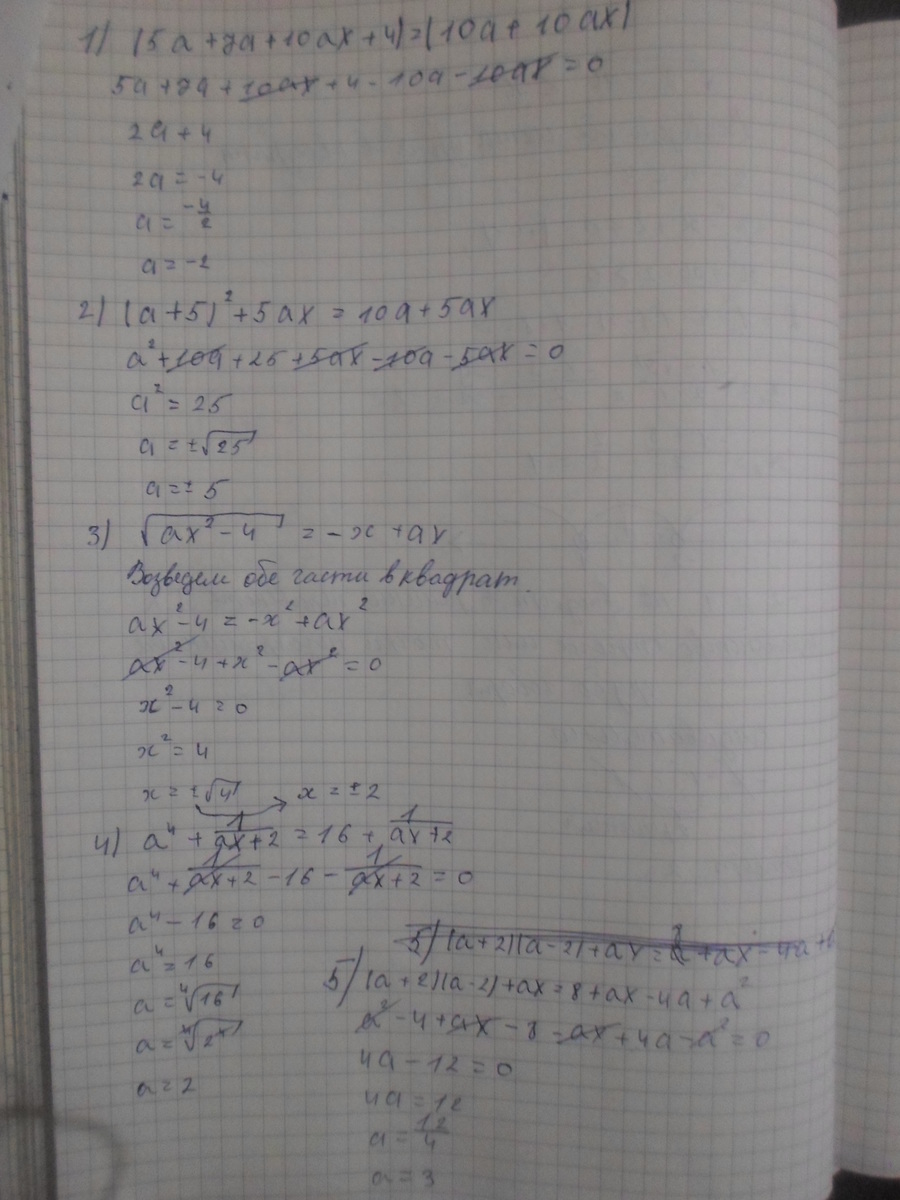 1) (5a+7a+10ax+4)=(10a+10ax)
5a+7a+10ax+4-10a-10ax=0
2a+4
2a=-4
a=-4/2
a=-2
2) (a+5)²+5ax=10a+5ax
a²+10a+25+5ax-10a-5ax=0
a²=25
a=±√25
a=±5
3) √(ax²-4) = -x+ax
Возведем обе части в квадрат.
ax²-4=-x²+ax²
ax²-4+x²-ax²=0
x²-4=0
x²=4
x=±√4 → x=±2
4) a⁴+1/(ax+2)=16+1/(ax+2)
a⁴+1/(ax+2)-16-1/(ax+2)=0
a⁴-16=0
a⁴=16
a=⁴√16
a=⁴√2⁴
a=2
5) (a+2)(a-2)+ax=8+ax-4a+a²
a²-4+ax-8-ax+4a-a²=0
4a-12=0
4a=12
a=12/4
a=3